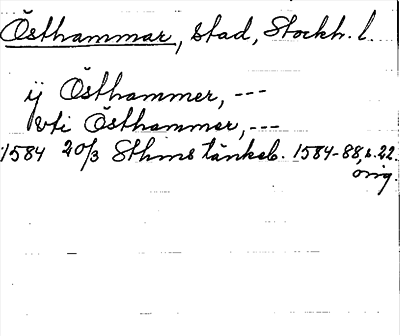 Östhammar, stad, Stockh. l.
ij Östhammer, ---
vti Östhammer, ---
1584 20/3 Sthms tänkeb. 1584-88, s. 22.
orig.